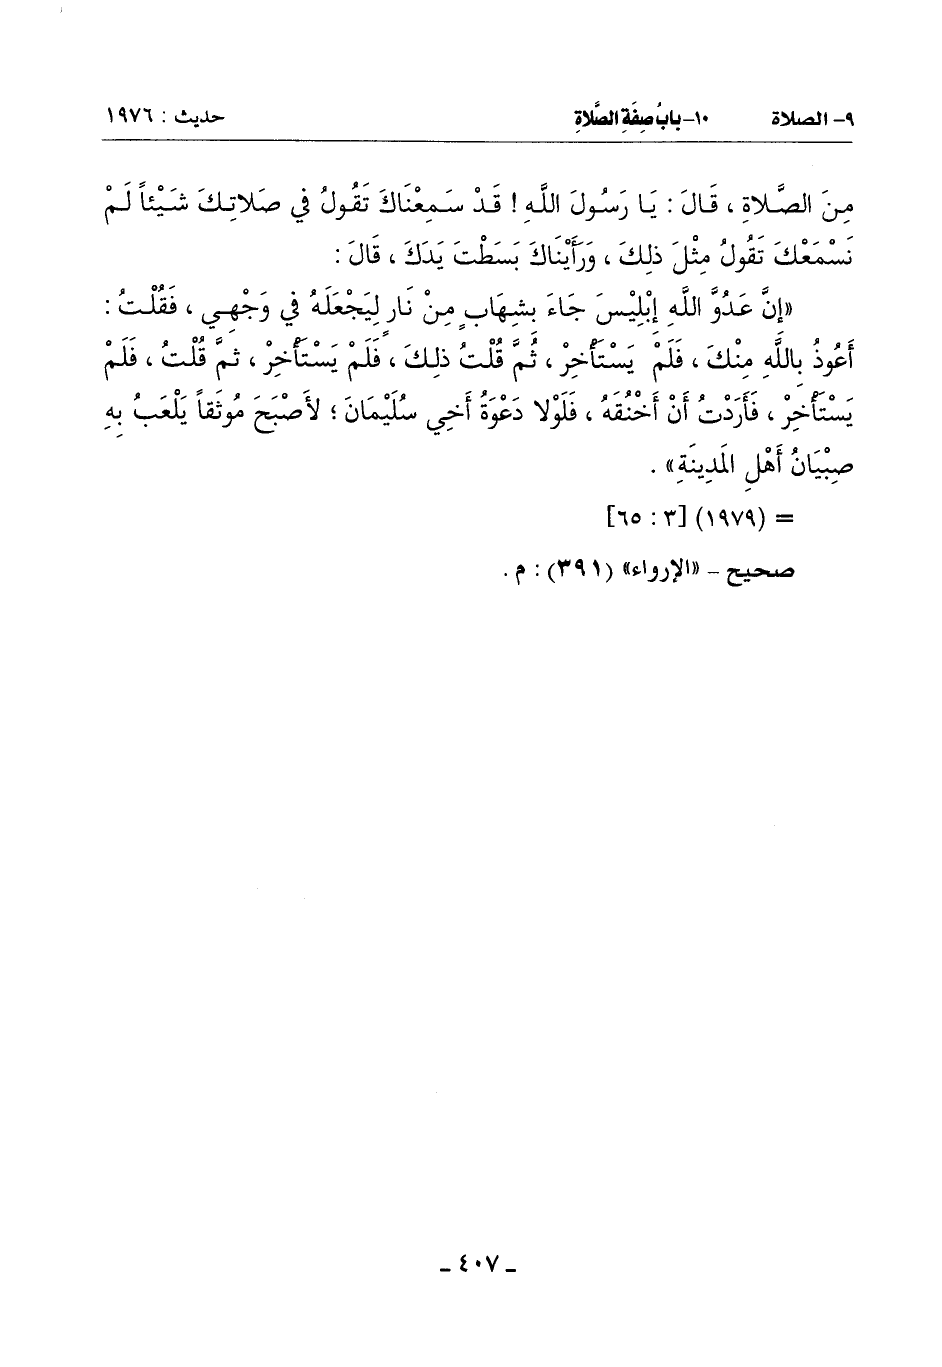 ٩- الصلاة ١٠- بابُ صِفَةِ الصَّلاةِ حديث : ١٩٧٦
مِنَ الصَّلاةِ ، قَالَ : يَا رَسُولَ اللَّهِ ! قَدْ سَمِعْنَاكَ تَقُولُ في صَلاتِكَ شَيْئاً لَمْ
نَسْمَعْكَ تَقُولُ مِثْلَ ذلِكَ ، وَرَأَيْنَاكَ بَسَطْتَ يَدَكَ ، قَالَ :
«إنَّ عَدُوَّ اللَّهِ إبْلِيْسَ جَاءَ بشِهَابٍ مِنْ نَارٍ لِيَجْعَلَهُ في وَجْهِي ، فَقُلْتُ :
أَعُوذُ بِاللَّهِ مِنْكَ ، فَلَمْ يَسْتَأْخِرْ ، ثُمَّ قُلْتُ ذلِكَ ، فَلَمْ يَسْتَأْخِرْ ، ثمَّ قُلْتُ ، فَلَمْ
يَسْتَأْخِرْ ، فَأَرَدْتُ أَنْ أَخْنُقَهُ ، فَلَوْلا دَعْوَةُ أَخِي سُلَيْمَانَ ؛ لأَصْبَحَ مُوثَقاً يَلْعَبُ بِهِ
صِبْيَانُ أَهْلِ المَدِينَةِ» .
= (١٩٧٩) [٣ : ٦٥]
صحيح - «الإرواء» (٣٩١) : م .
ـ ٤٠٧ ـ